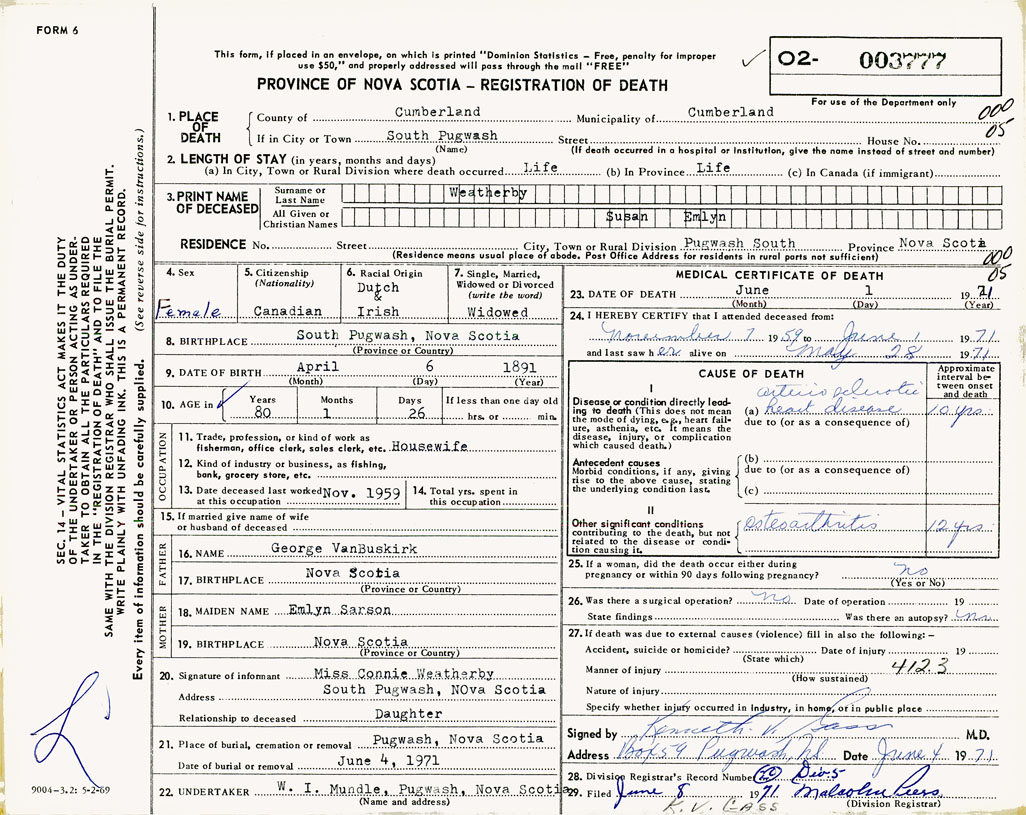 FORM 6
This form, if placed in an envelope, on which is printed "Dominion Statistics - Free, penalty for improper
use $50," and properly addressed will pass through the mail "FREE"
02- 003777
PROVINCE OF NOVA SCOTIA - REGISTRATION OF DEATH
For use of the Department only
1. PLACE OF DEATH
County of Cumberland Municipality of Cumberland 000
If in City or Town South Pugwash Street House No. 05
(Name) (If death occurred in a hospital or institution, give the name instead of street and number)
2. LENGTH OF STAY (in years, months and days)
(a) In City, Town or Rural Division where death occurred Life (b) In Province Life (c) In Canada (if immigrant)
3. PRINT NAME OF DECEASED
Surname or Last Name Weatherby
All Given or Christian Names Susan Emlyn
RESIDENCE No. Street City, Town or Rural Division Pugwash South Province Nova Scotia
(Residence means usual place of abode. Post Office Address for residents in rural parts not sufficient) 000
05
4. Sex
Female
5. Citizenship
(Nationality)
Canadian
6. Racial Origin
Dutch
&
Irish
7. Single, Married,
Widowed or Divorced
(write the word)
Widowed
8. BIRTHPLACE South Pugwash, Nova Scotia
(Province or Country)
9. DATE OF BIRTH April 6 1891
(Month) (Day) (Year)
10. AGE in Years Months Days If less than one day old
80 1 26 hrs. or min.
OCCUPATION
11. Trade, profession, or kind of work as
fisherman, office clerk, sales clerk, etc. Housewife
12. Kind of industry or business, as fishing,
bank, grocery store, etc.
13. Date deceased last worked at this occupation Nov. 1959
14. Total yrs. spent in this occupation
15. If married give name of wife
or husband of deceased
FATHER
16. NAME George VanBuskirk
17. BIRTHPLACE Nova Scotia
(Province or Country)
MOTHER
18. MAIDEN NAME Emlyn Sarson
19. BIRTHPLACE Nova Scotia
(Province or Country)
20. Signature of informant Miss Connie Weatherby
Address South Pugwash, NOva Scotia
Relationship to deceased Daughter
21. Place of burial, cremation or removal Pugwash, Nova Scotia
Date of burial or removal June 4, 1971
22. UNDERTAKER W. I. Mundle, Pugwash, Nova Scotia
(Name and address)
MEDICAL CERTIFICATE OF DEATH
23. DATE OF DEATH June 1 1971
(Month) (Day) (Year)
24. I HEREBY CERTIFY that I attended deceased from:
November 7 1959 to June 1 1971
and last saw her alive on May 28 1971
CAUSE OF DEATH
Approximate interval between onset and death
I
Disease or condition directly leading to death (This does not
mean the mode of dying, e.g., heart failure, asthenia, etc. It means the
disease, injury, or complication
which caused death.)
arterio sclerotic
(a) heart disease 10 yrs.
due to (or as a consequence of)
Antecedent causes
Morbid conditions, if any, giving
rise to the above cause, stating
the underlying condition last.
(b)
due to (or as a consequence of)
(c)
II
Other significant conditions
contributing to the death, but not
related to the disease or condition causing it.
osteoarthritis 12 yrs.
25. If a woman, did the death occur either during
pregnancy or within 90 days following pregnancy? no
(Yes or No)
26. Was there a surgical operation? no Date of operation 19
State findings Was there an autopsy? no
27. If death was due to external causes (violence) fill in also the following: -
Accident, suicide or homicide? Date of injury 19
(State which)
Manner of injury 412.3
(How sustained)
Nature of injury
Specify whether injury occurred in industry, in home, or in public place
Signed by Kenneth V. Gass M.D.
Address Box 59 Pugwash, N.S. Date June 4 1971
28. Division Registrar's Record Number 20 Div 5
29. Filed June 8 1971 Malcolm Piers
(Division Registrar)
K. V. GASS
SEC. 14 - VITAL STATISTICS ACT MAKES IT THE DUTY
OF THE UNDERTAKER OR PERSON ACTING AS UNDER-
TAKER TO OBTAIN ALL THE PARTICULARS REQUIRED
IN THE "REGISTRATION OF DEATH" AND TO FILE THE
SAME WITH THE DIVISION REGISTRAR WHO SHALL ISSUE THE BURIAL PERMIT.
WRITE PLAINLY WITH UNFADING INK. THIS IS A PERMANENT RECORD.
Every item of information should be carefully supplied. (See reverse side for instructions.)
9004-3.2: 5-2-69